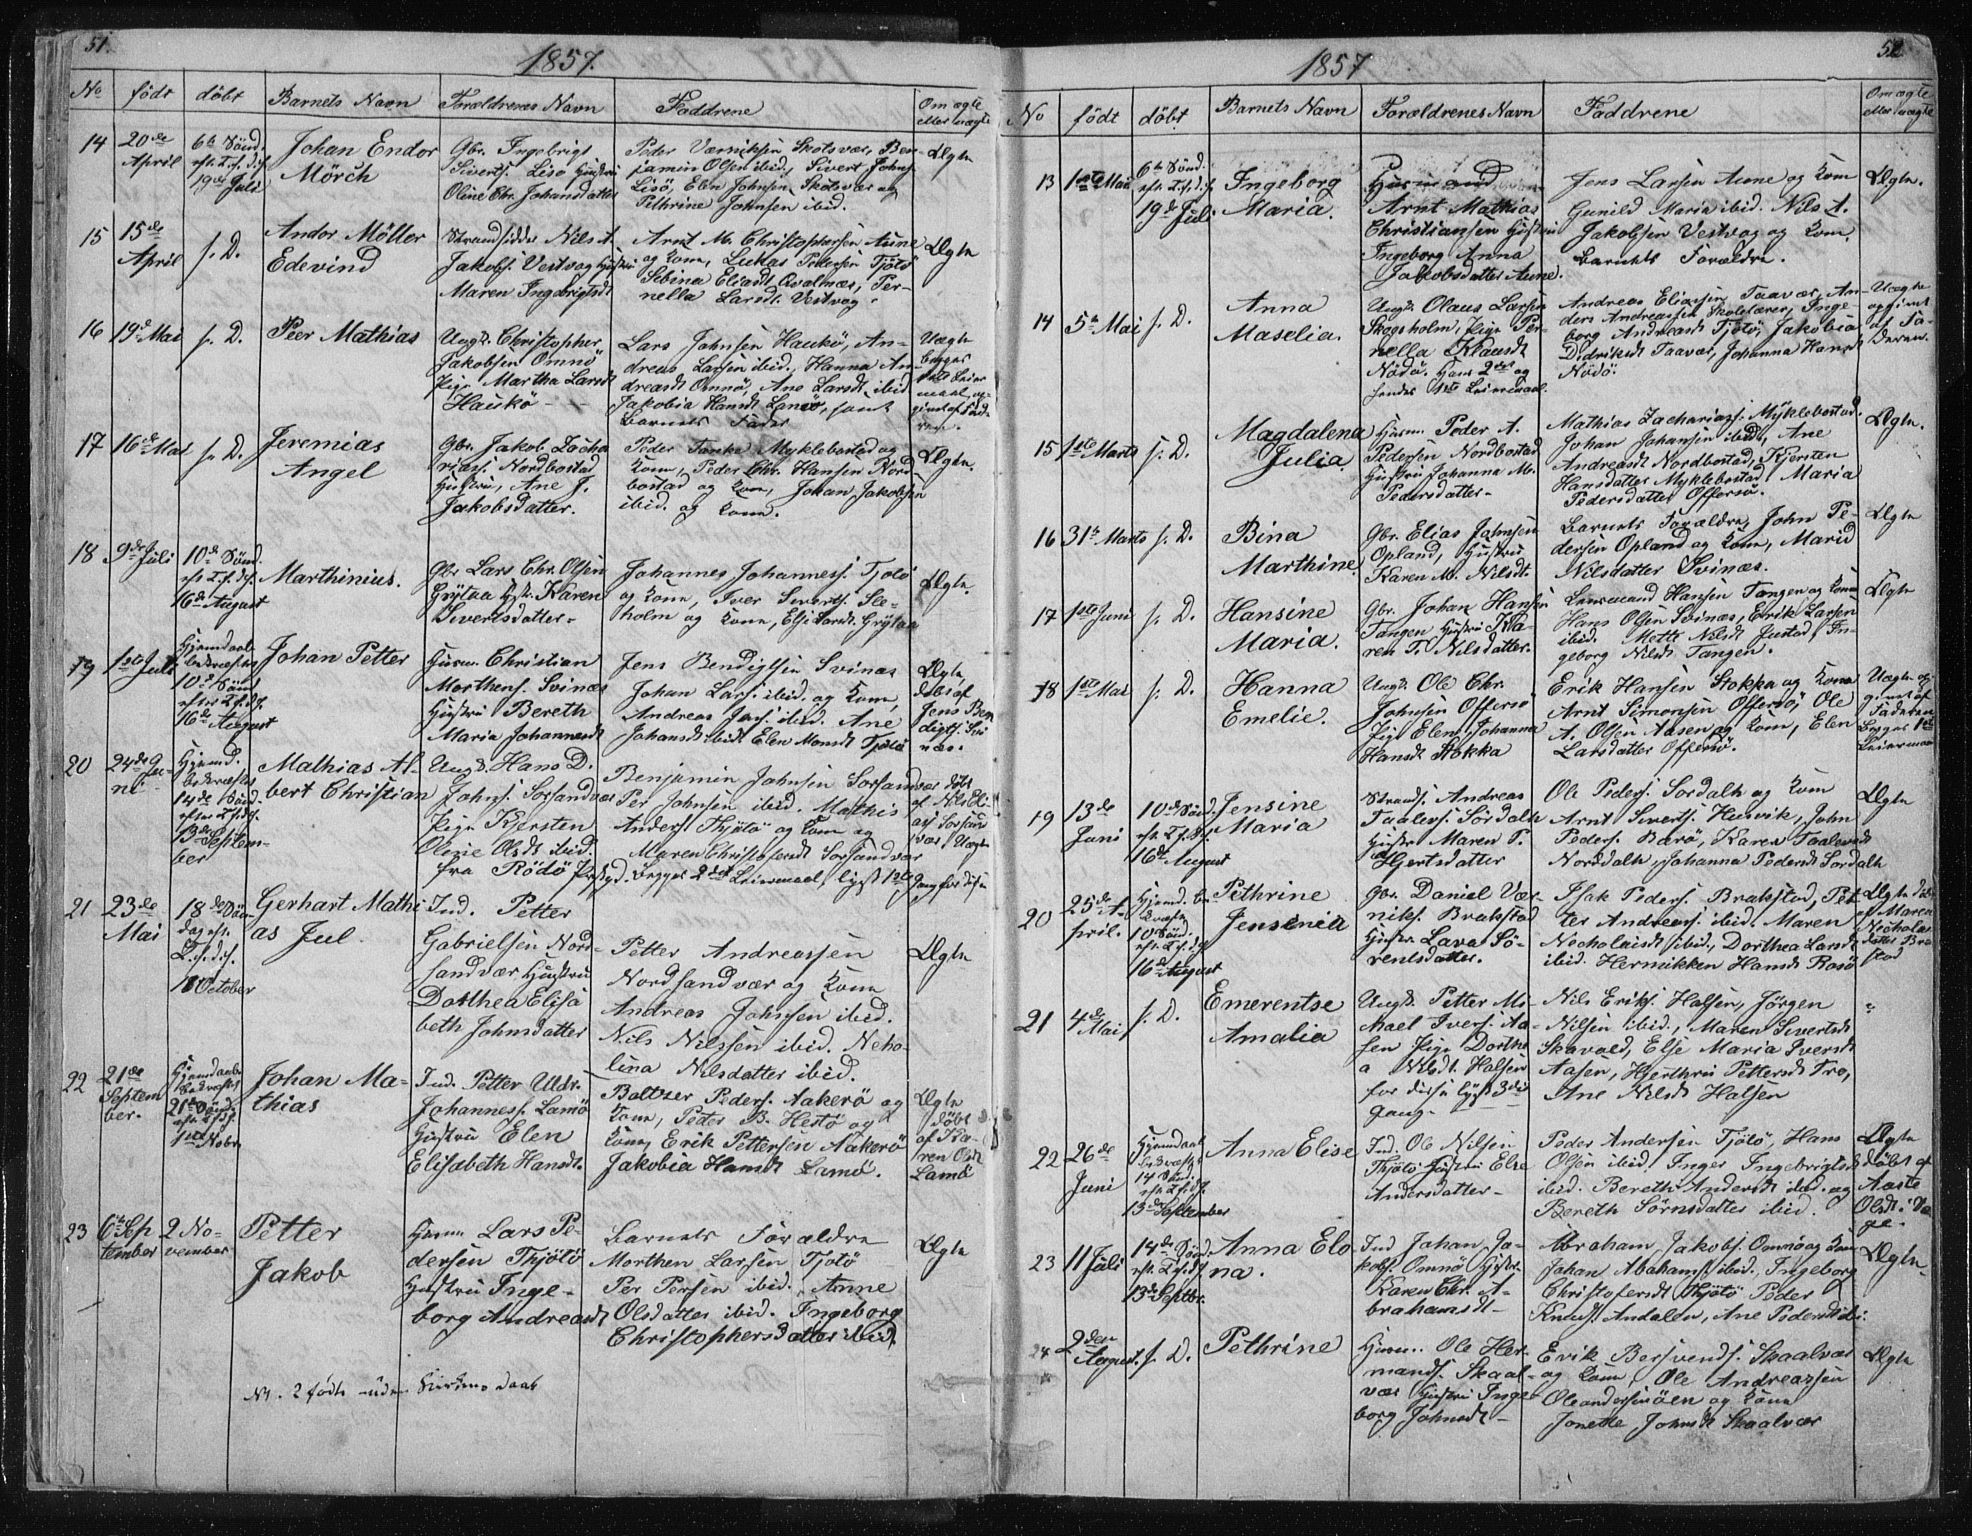 51.
1857.
No
födt
döbt
Barnets Navn
Forældrenes Navn
Faddrene
Om ægte
eller uægte
14
20de
April
6te Sönd.
eft. T. f. d. f.
19de Juli
Johan Endor
Mörch
Gbr. Ingebrigt
Sivert. Lisø Hustru
Oline Chr. Johansdatter
Peder Værniksen Skotsvær, Ben-
jamin Olsen ibid, Sivert Johns.
Lisö, Elen Johnsen Skotsvær og
Pethrine Johnsen ibid.
Ægte
15
15de
April
s. D.
Andor Möller
Edevind
Strandsidder Nils A.
Jakobs. Vestvog Hustru
Maren Ingebrigtsdt
Arnt M. Christophersen Aune
og Kone, Lukas Pedersen Tjötö
Sebina Eliasdt Qvalnæs, Per-
nella Larsdt Vestvog.
Ægte
16
19de Mai
s. D.
Peer Mathias
Ungk. Christopher
Jakobsen Omnö
Pige Martha Larsdt
Hauskö
Lars Johnsen Haukö, An-
dreas Larsen ibid., Hanna An-
dreasdt Omnö, Ane Larsdt ibid
Jakobia Hansdt Lamö, samt
Barnets Fader
Uægte
begges
1ste Leier
maal, op-
givet af Fad-
ren.
17
16de Mai
s. D.
Jeremias
Angel
Gbr. Jakob Zacha
riass. Nordbostad
Hustru, Ane J.
Jakobsdatter.
Peder Tanke Myklebostad og
Kone, Peder Chr. Hansen Nord
bostad og Kone, Johan Jakobsen
ibid. og Kone.
Ægte.
18
9de Juli
10de Sönd.
eft. T. f. d. f.
16de August
Marthinius.
Gbr Lars Chr. Olsen
Grÿtaa Hst. Karen
Sivertsdatter.
Johannes Johanness. Tjotö
og Kone, Iver Siverts. Sle-
holm og Kone, Elsi Larsdt. Grÿtaa
Ægte.
19
1ste Juli
Hjemdaab
bekræftet
10de Sönd
efter T. f. d. f.
16de August
Johan Petter
Husm. Christian
Morthens. Svinæs
Hustru Bereth
Maria Johannesdt
Jens Bendigtsen Svinæs
Johan Lars. ibid. og Kone,
Andreas Jens. ibid. Ane
Johansdt ibidt Elen Monsdt Tjötö
Ægte,
döbt af
Jens Ben
digts. Svi
næs.
20
24de Ju-
ni
Hjemd.
bekræftet
14de Sönd.
efter T. f. d. f.
13de Septem-
ber
Mathias Al-
bert Christian
Ungk. Hans D.
Johns. Sorsandvær
Pige Kjersten
Oline Olsdt ibid.
fra Rödö Prstgd. Begges 2det Leiermaal, lyst 1ste Gang for disse
Benjamin Johnsen Sorsandvær
Per Johnsen ibid. Mathis
Anders. Thjötö og Kone og
Maren Christofersdt Sorsandvær
döbt
af Nils Eli-
ass Sorsand
vær Uægte
21
23de
Mai
18de Sön-
dag eft.
T. f. d. f.
18 October
Gerhart Mathi
as Jul.
Ind. Petter
Gabrielsen Nord-
sandvær Hustru
Dorthea Elisa
beth Johnsdatter
Petter Andreassen
Nordsandvær og Kone
Andreas Johnsen ibid.
Nils Nilssen ibid. Neko-
lina Nilsdatter ibid.
Ægte
22
21de
Septem
ber.
Hjemdaab
bekræftet
21de Sönd
eft. T. f. d. f.
1ste Nobr.
Johan Ma-
thias
Ind. Petter Uldr.
Johanness. Lamö
Hustru Elen
Elisabeth Hansdt.
Boltzer Peders. Aakerö og
Kone, Peder B. Hestö og
Kone, Erik Pettersen Aakerö
Jakobia Hansdt Lamö.
Ægte
döbt
af Ka-
ren Olsdt
Lamö
23
6te Sep
tember
2 No-
vember
Petter
Jakob
Husm Lars Pe-
dersen Thjötö
Hustru Inge-
borg Andreasdt
Barnets Forældre
Morthen Larsen Tjötö
Per Persen ibid. Anne
Olsdatter ibid. Ingeborg
Christophersdatter ibid.
Ægte
No. 2 födte uden Kirkens Daab
52
1857
No
födt
döbt
Barnets Navn
Forældrenes Navn
Faddrene
Om ægte
eller uægte
13
1ste Mai
6te Sönd.
eft. T. f. d. f.
19de Juli
Ingeborg
Maria.
Husmand
Arnt Mathias
Christiansen Hustru
Ingeborg Anna
Jakobsdatter Aune.
Jens Larsen Aune og Kone
Gunild Maria ibid. Nils A.
Jakobsen Vestvog og Kone,
Barnets Forældre.
Ægte.
14
5te Mai
s. D.
Anna
Maselia.
Ungk. Olaus Larsen
Skogsholm, Pige Per-
nella Klausdt
Nödö. Hans 2det og
hendes 1ste Leiermaal.
Andreas Eliassen Taavær, An-
ders Andreassen Skolelærer, Inge-
borg Andreasdt Tjötö, Jakobia
Didriksdt Taavær, Johanna Hansdt
Nödö.
Uægte
opgivet
af Fa-
deren.
15
1ste Marts
s. D.
Magdalena
Julia
Husm. Peder A.
Pedersen Nordbostad
Hustru Johanna M.
Pedersdatter.
Mathias Zachariass. Myklebostad.
Johan Johansen ibid, Ane
Andreasdt Nordbostad, Kjersten
Hansdatter Myklebostad, Maria
Pedersdatter Offersö.
Ægte.
16
31te Marts
s. D.
Bina
Marthine.
Gbr. Elias Johnsen
Opland, Hustru
Karen M. Nilsdt.
Barnets Forældre, John Pe-
dersen Opland og Kone, Maria
Nilsdatter Svinæs.
Ægte
17
1ste Juni
s. D.
Hansine
Maria.
Gbr. Johan Hansen
Tangen Hustru Ma-
ren T. Nilsdatter.
Lensmand Hansen Tangen og Kone
Hans Olsen Svinæs, Erik Larsen
ibid. Mette Nilsdt Justad, In-
geborg Nilsdt Tangen.
Ægte
18
1ste Mai
s. D.
Hanna
Emelie.
Ungk. Ole Chr.
Johnsen Offersö
Pige Elen Johanna
Hansdt Stokka
Erik Hansen Stokka og Kone
Arnt Simonsen Offersö, Ole
A. Olsen Aasen og Kone, Elen
Larsdatter Offersö.
Uægte op-
givet af
Faderen
Begges 1ste
Leiermaal
19
13de
Juni
10de Sönd.
eft. T. f. d. f.
16de August
Jensine
Maria
Strands. Andreas
Taalers. Sördalh
Hustr. Maren P.
Hjertsdatter
Ole Peders. Sordalh og Kone
Arnt Siverts. Husvik, John
Peders. Barö, Karen Taalersdt
Nordalh, Johanna Pedersdt Sordalh
Ægte
20
25de A-
pril.
Hjemd. be-
kræftet
10 Sönd.
eft. T. f. d. f.
16de August
Pethrine
Jensenia
Gbr. Daniel Vær-
niks. Brakstad
Hustr Lava Sö-
rensdatter.
Isak Peders. Brakstad, Pet
ter Andreass. ibid. Maren
Necholaisdt ibid., Dorthea Larsdt
ibid. Hermikken Hansdt Rosö
Ægte döbt
af Maren
Necholais
datter Brak
stad
21
4de
Mai
s. D.
Emerentse
Amalia
Ungk. Petter Mi-
kael Ivers. Aa-
sen Pige Dorthe
a Nilsdt. Halsen
for disse lyst 3die
Gang.
Nils Eriks. Halsen, Jörgen
Nilsen ibid., Maren Sivertsdt
Skavold, Else Maria Iversdt
Aasen, Hjerthru Pettersdt Tro,
Ane Nilsdt Halsen
"
22
26de
Juni
Hjemdaab
bekræftet
14 Sönd.
eft. T. f. d. f.
13de September
Anna Elise
Ind. Ole Nilsen
Thjötö Hustru Else
Andersdatter
Peder Andersen Tjötö, Hans
Olsen ibid. Inger Ingebrigtsdt
ibid. Bereth Andersdt ibid. og
Bereth Sörnsdatter ibid.
Ægte
döbt af
Aaste
Olsdt. Va
ge.
23
11 Juli
14de Sönd.
eft. T. f. d. f.
13de Septbr.
Anna Elo-
na.
Ind Johan Ja-
kobs. Omnö Hustr.
Karen Chr. A-
brahamsdt
Abraham Jakobs. Omnö og Kone
Johan Abahams. ibid., Ingeborg
Christofersdt Thjötö Peder
Knuds. Andalen, Ane Pedersdt ibi.
Ægte.
24
2den
August.
s. D.
Pethrine
Husm. Ole Her-
mands. Skaal-
vær Hustru Inge
borg Johnsdt
Erik Bersvends. Skaalvær
og Kone, Ole Andreassen
Oleandersenöen og Kone
Jonette Johnsdt Skaalvær
Ægte